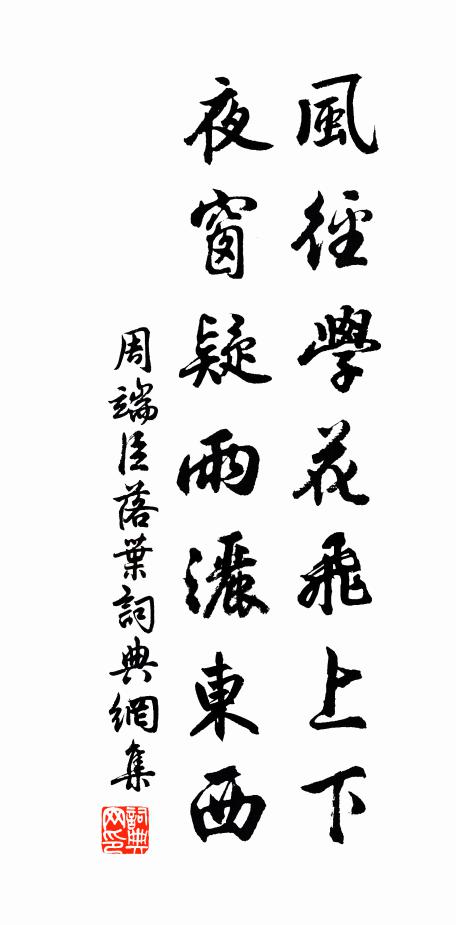 風徑學花飛上下
夜窗疑雨灑東西
周端臣落葉詞典網集
詞典网印